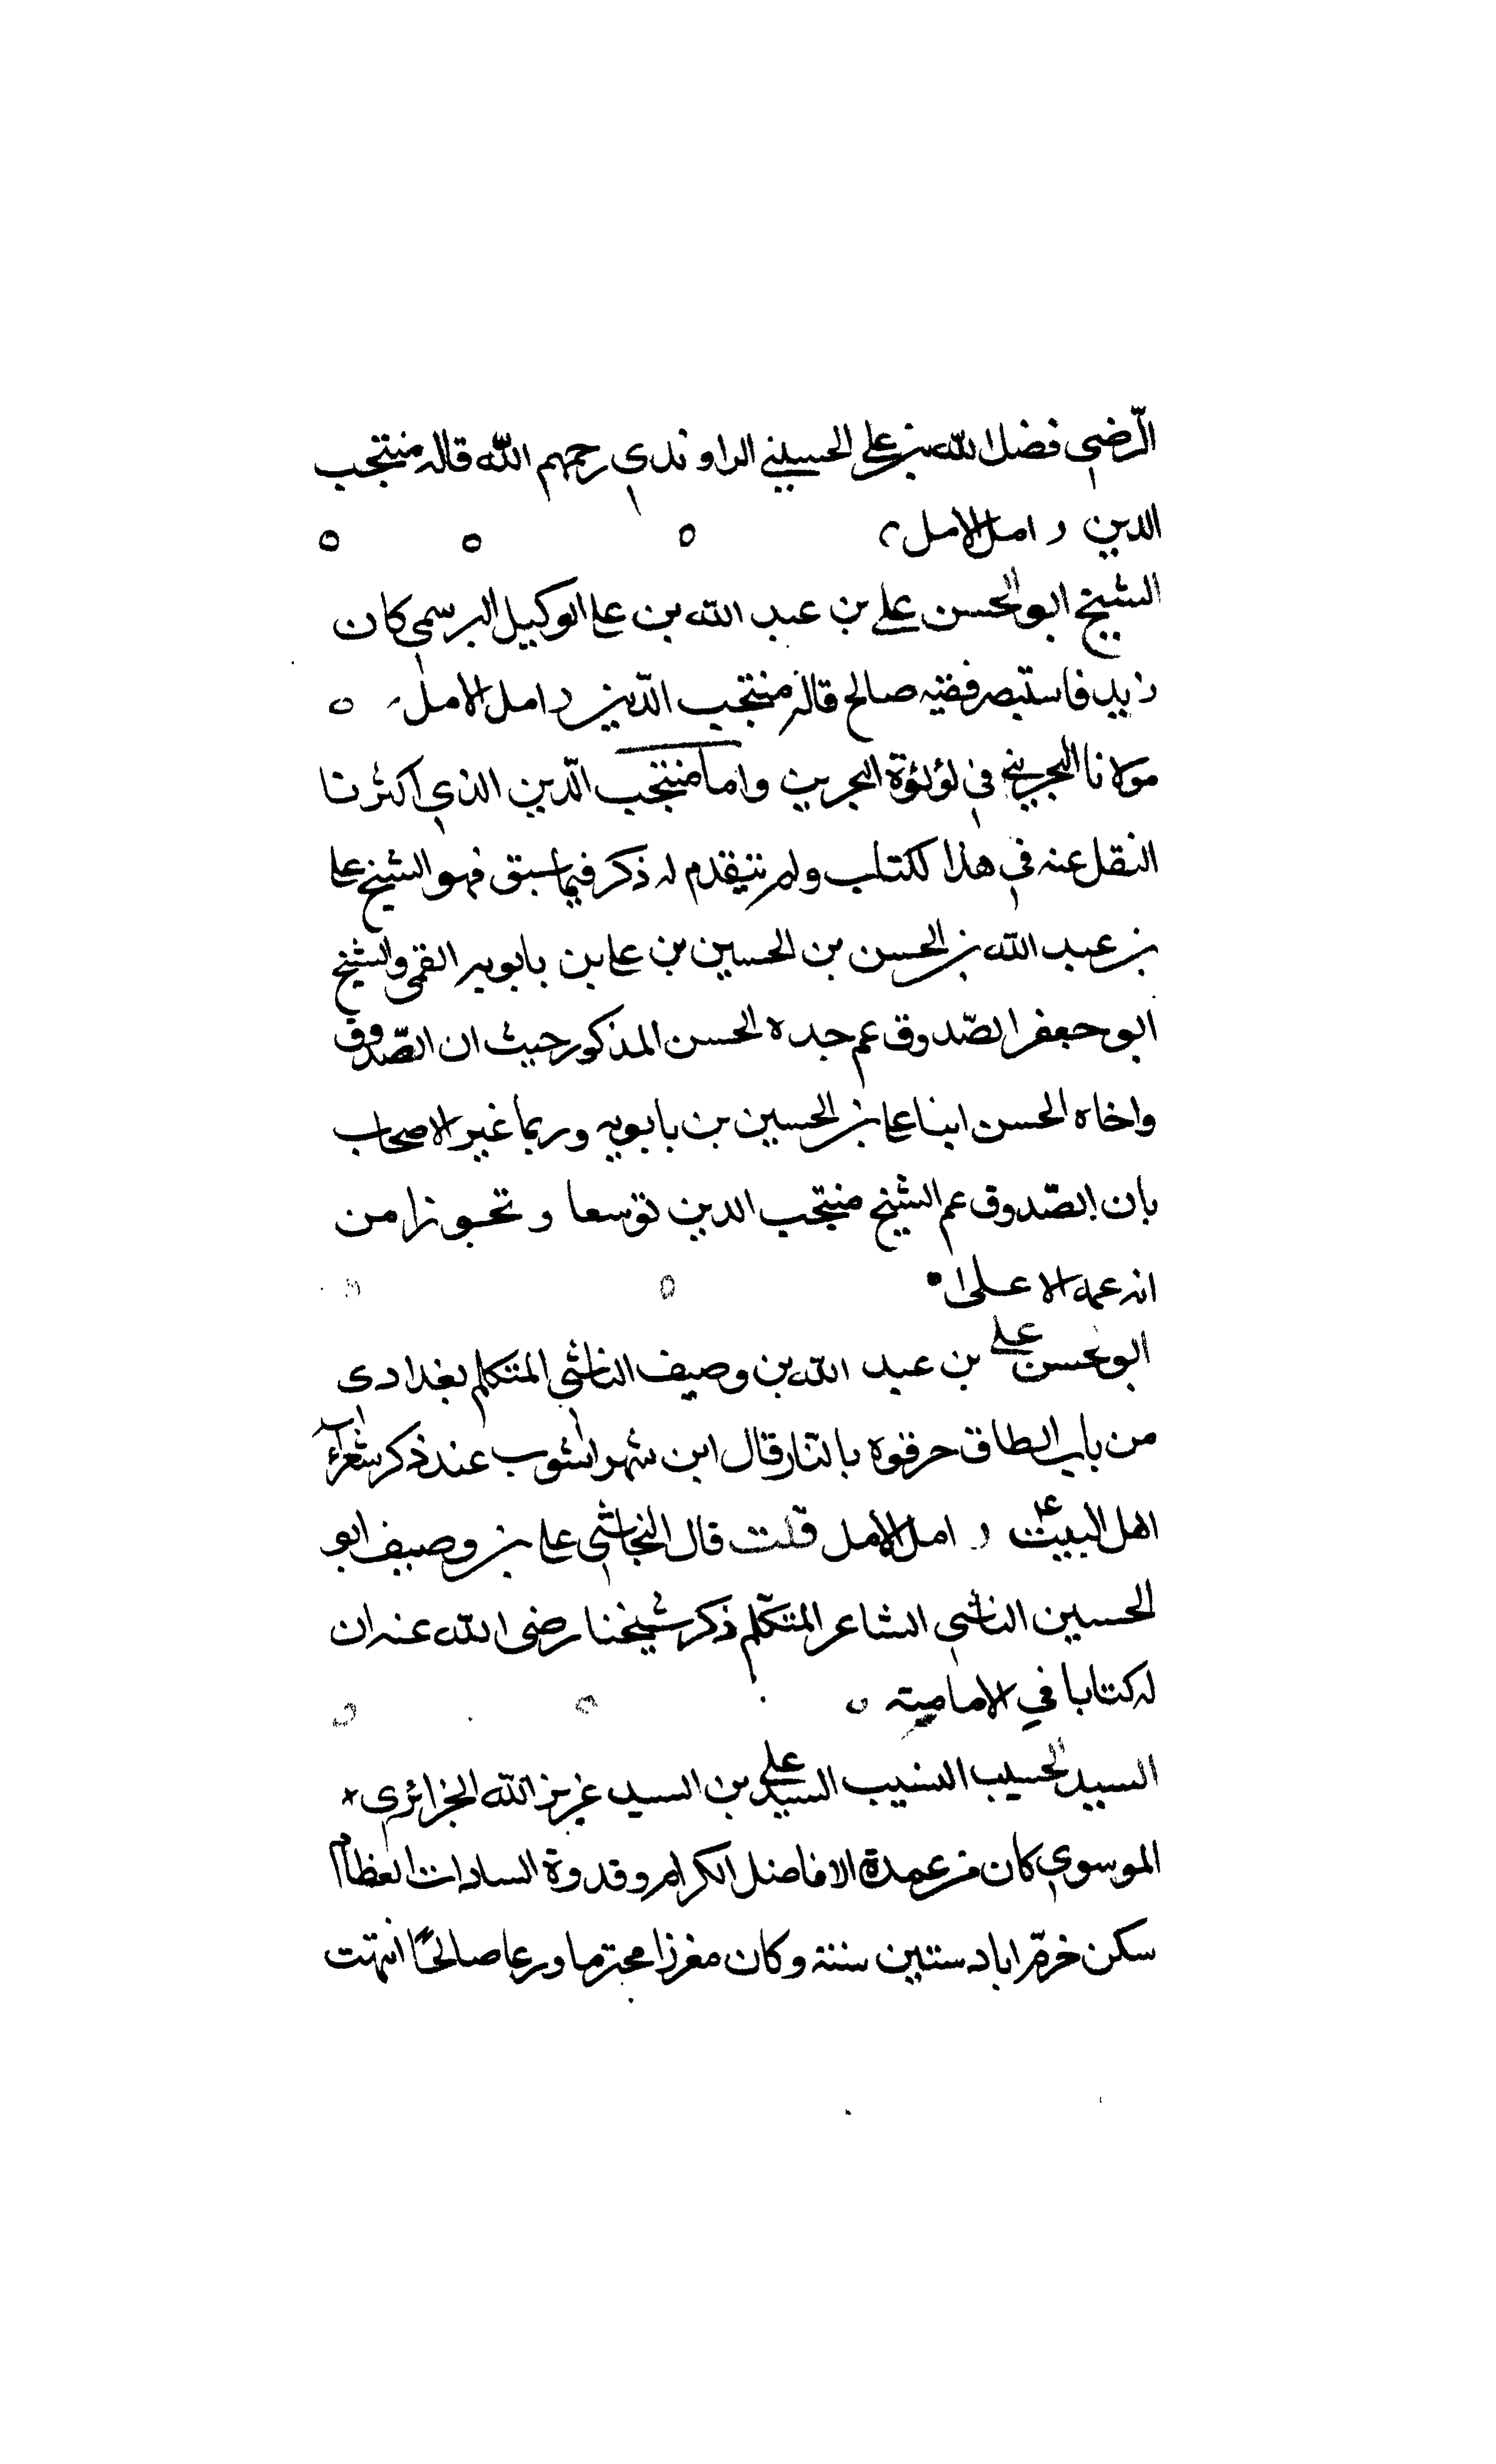 الرّضي فضل الله بن علي الحسيني الراوندي رحمهم الله قاله منتجب
الدين و امل الامل
الشيخ ابو الحسن علي بن عبد الله بن على الوكيل البرسمي كان
زيد فاستبصر فقيه صالح قاله منتجب الدّين و امل الامل
مولانا البحريني في لؤلؤة البحرين واما منتجب الدّين الذي اكثرنا
النقل عنه في هذا الكتاب ولم يتقدم له ذكر فيما سبق فهو الشيخ على
بن عبد الله بن الحسن بن الحسين بن على بن بابويه القمي والشيخ
ابو جعفر الصّدوق عم جده الحسن المذكور حيث ان الصّدوق
واخاه الحسن ابنا على بن الحسين بن بابويه وربما غير الاصحاب
بان الصّدوق عم الشيخ منتجب الدين توسعا و تجوزا من
انه عمه الاعلى
ابو حسن علي بن عبد الله بن وصيف الناشي المتكلم بغدادي
من باب الطاق حرقوه بالنار قال ابن شهراشوب عند ذكر شعراء
اهل البيت ع و امل الامل قلت قال النجاشي على بن وصيف ابو
الحسين الناشي الشاعر المتكلّم ذكر شيخنا رضى الله عنه ان
له كتابا في الامامية
السيد الحسيب النسيب السيد علي بن السيد عزيز الله الجزائري
الموسوي كان من عمدة الافاضل الكرام وقدوة السادات العظام
سكن خرمّ اباد ستين سنة وكان معززا محترما ورعا صالحًا انتهت